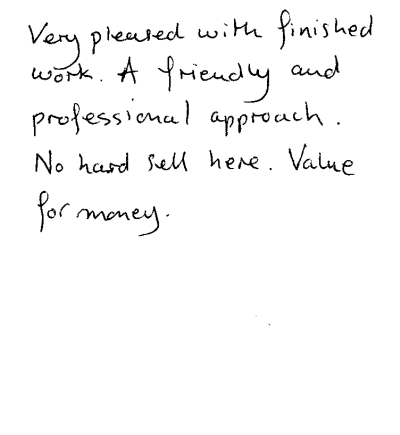 Very pleased with finished
work. A friendly and
professional approach.
No hard sell here. Value
for money.